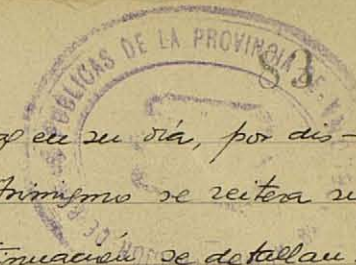 PUBLICAS DE LA PROVINCIA DE VA
83
en su día, por dis-
Asimismo se reitera su
se detallan